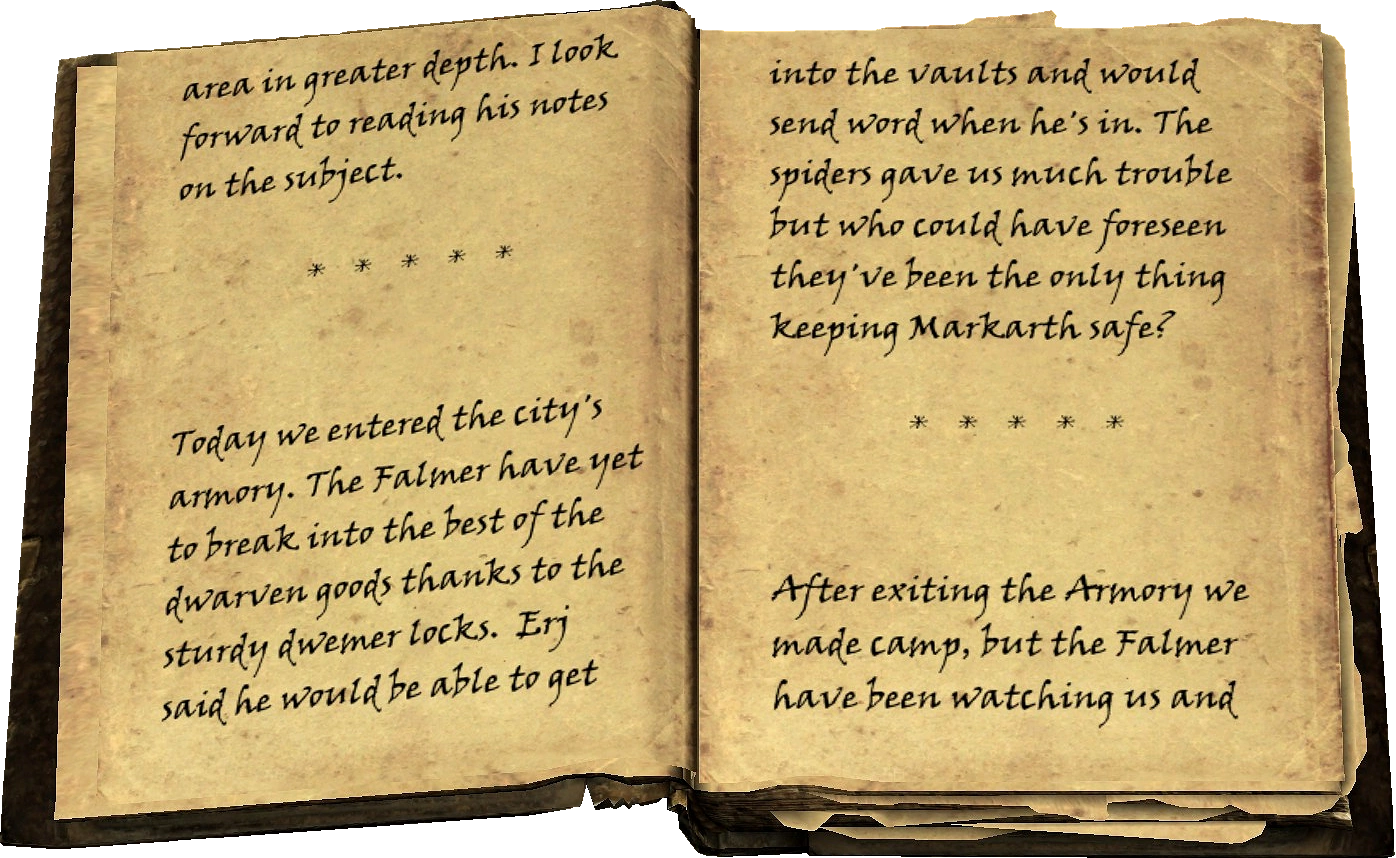 area in greater depth. I look
forward to reading his notes
on the subject.
* * * * *
Today we entered the city's
armory. The Falmer have yet
to break into the best of the
dwarven goods thanks to the
sturdy dwemer locks. Erj
said he would be able to get
into the vaults and would
send word when he's in. The
spiders gave us much trouble
but who could have foreseen
they've been the only thing
keeping Markarth safe?
* * * * *
After exiting the Armory we
made camp, but the Falmer
have been watching us and